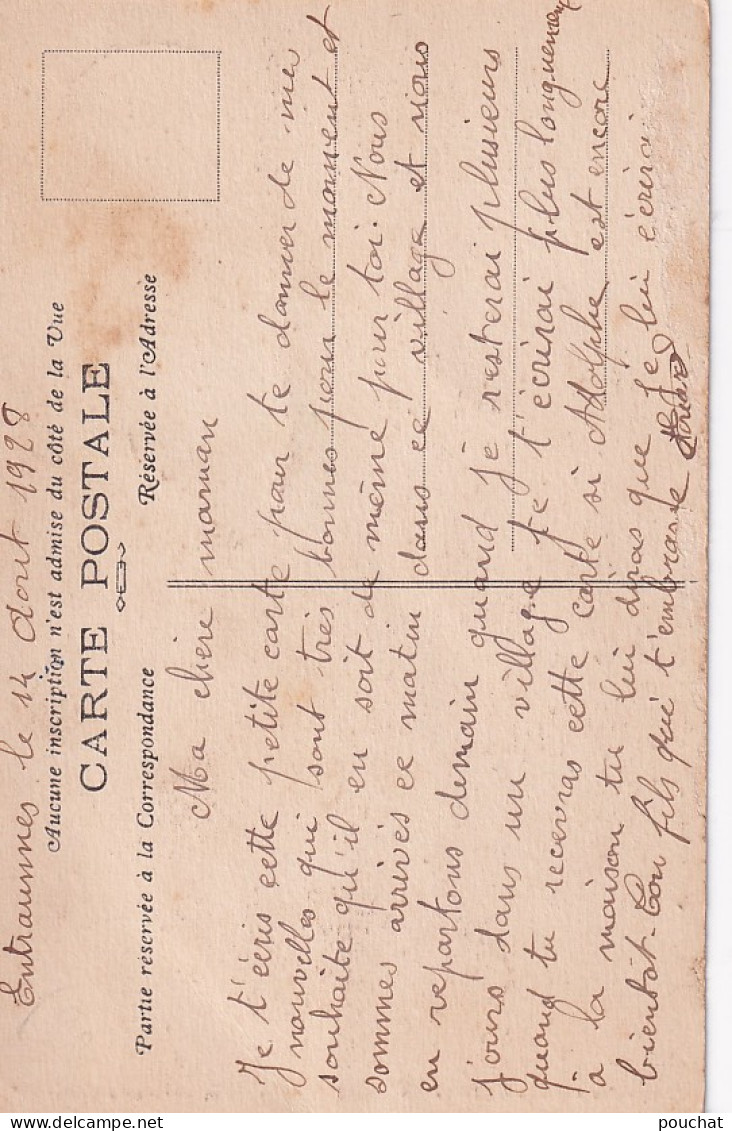 Entraunnes le 14 Aout 1928
Aucune inscription n'est admise du côté de la Vue
CARTE POSTALE
Partie réservée à la Correspondance
Réservée à l'Adresse
Ma chère maman
Je t'écris cette petite carte pour te donner de mes
nouvelles qui sont très bonnes pour le moment et
souhaite qu'il en soit de même pour toi. Nous
sommes arrivés ce matin dans ce village et nous
en repartons demain quand je resterai plusieurs
jours dans un village je t'écrirai plus longuement
quand tu recevras cette carte si Adolphe est encore
à la maison tu lui diras que je lui écrirai
bientôt. Ton fils qui t'embrasse
pouchat